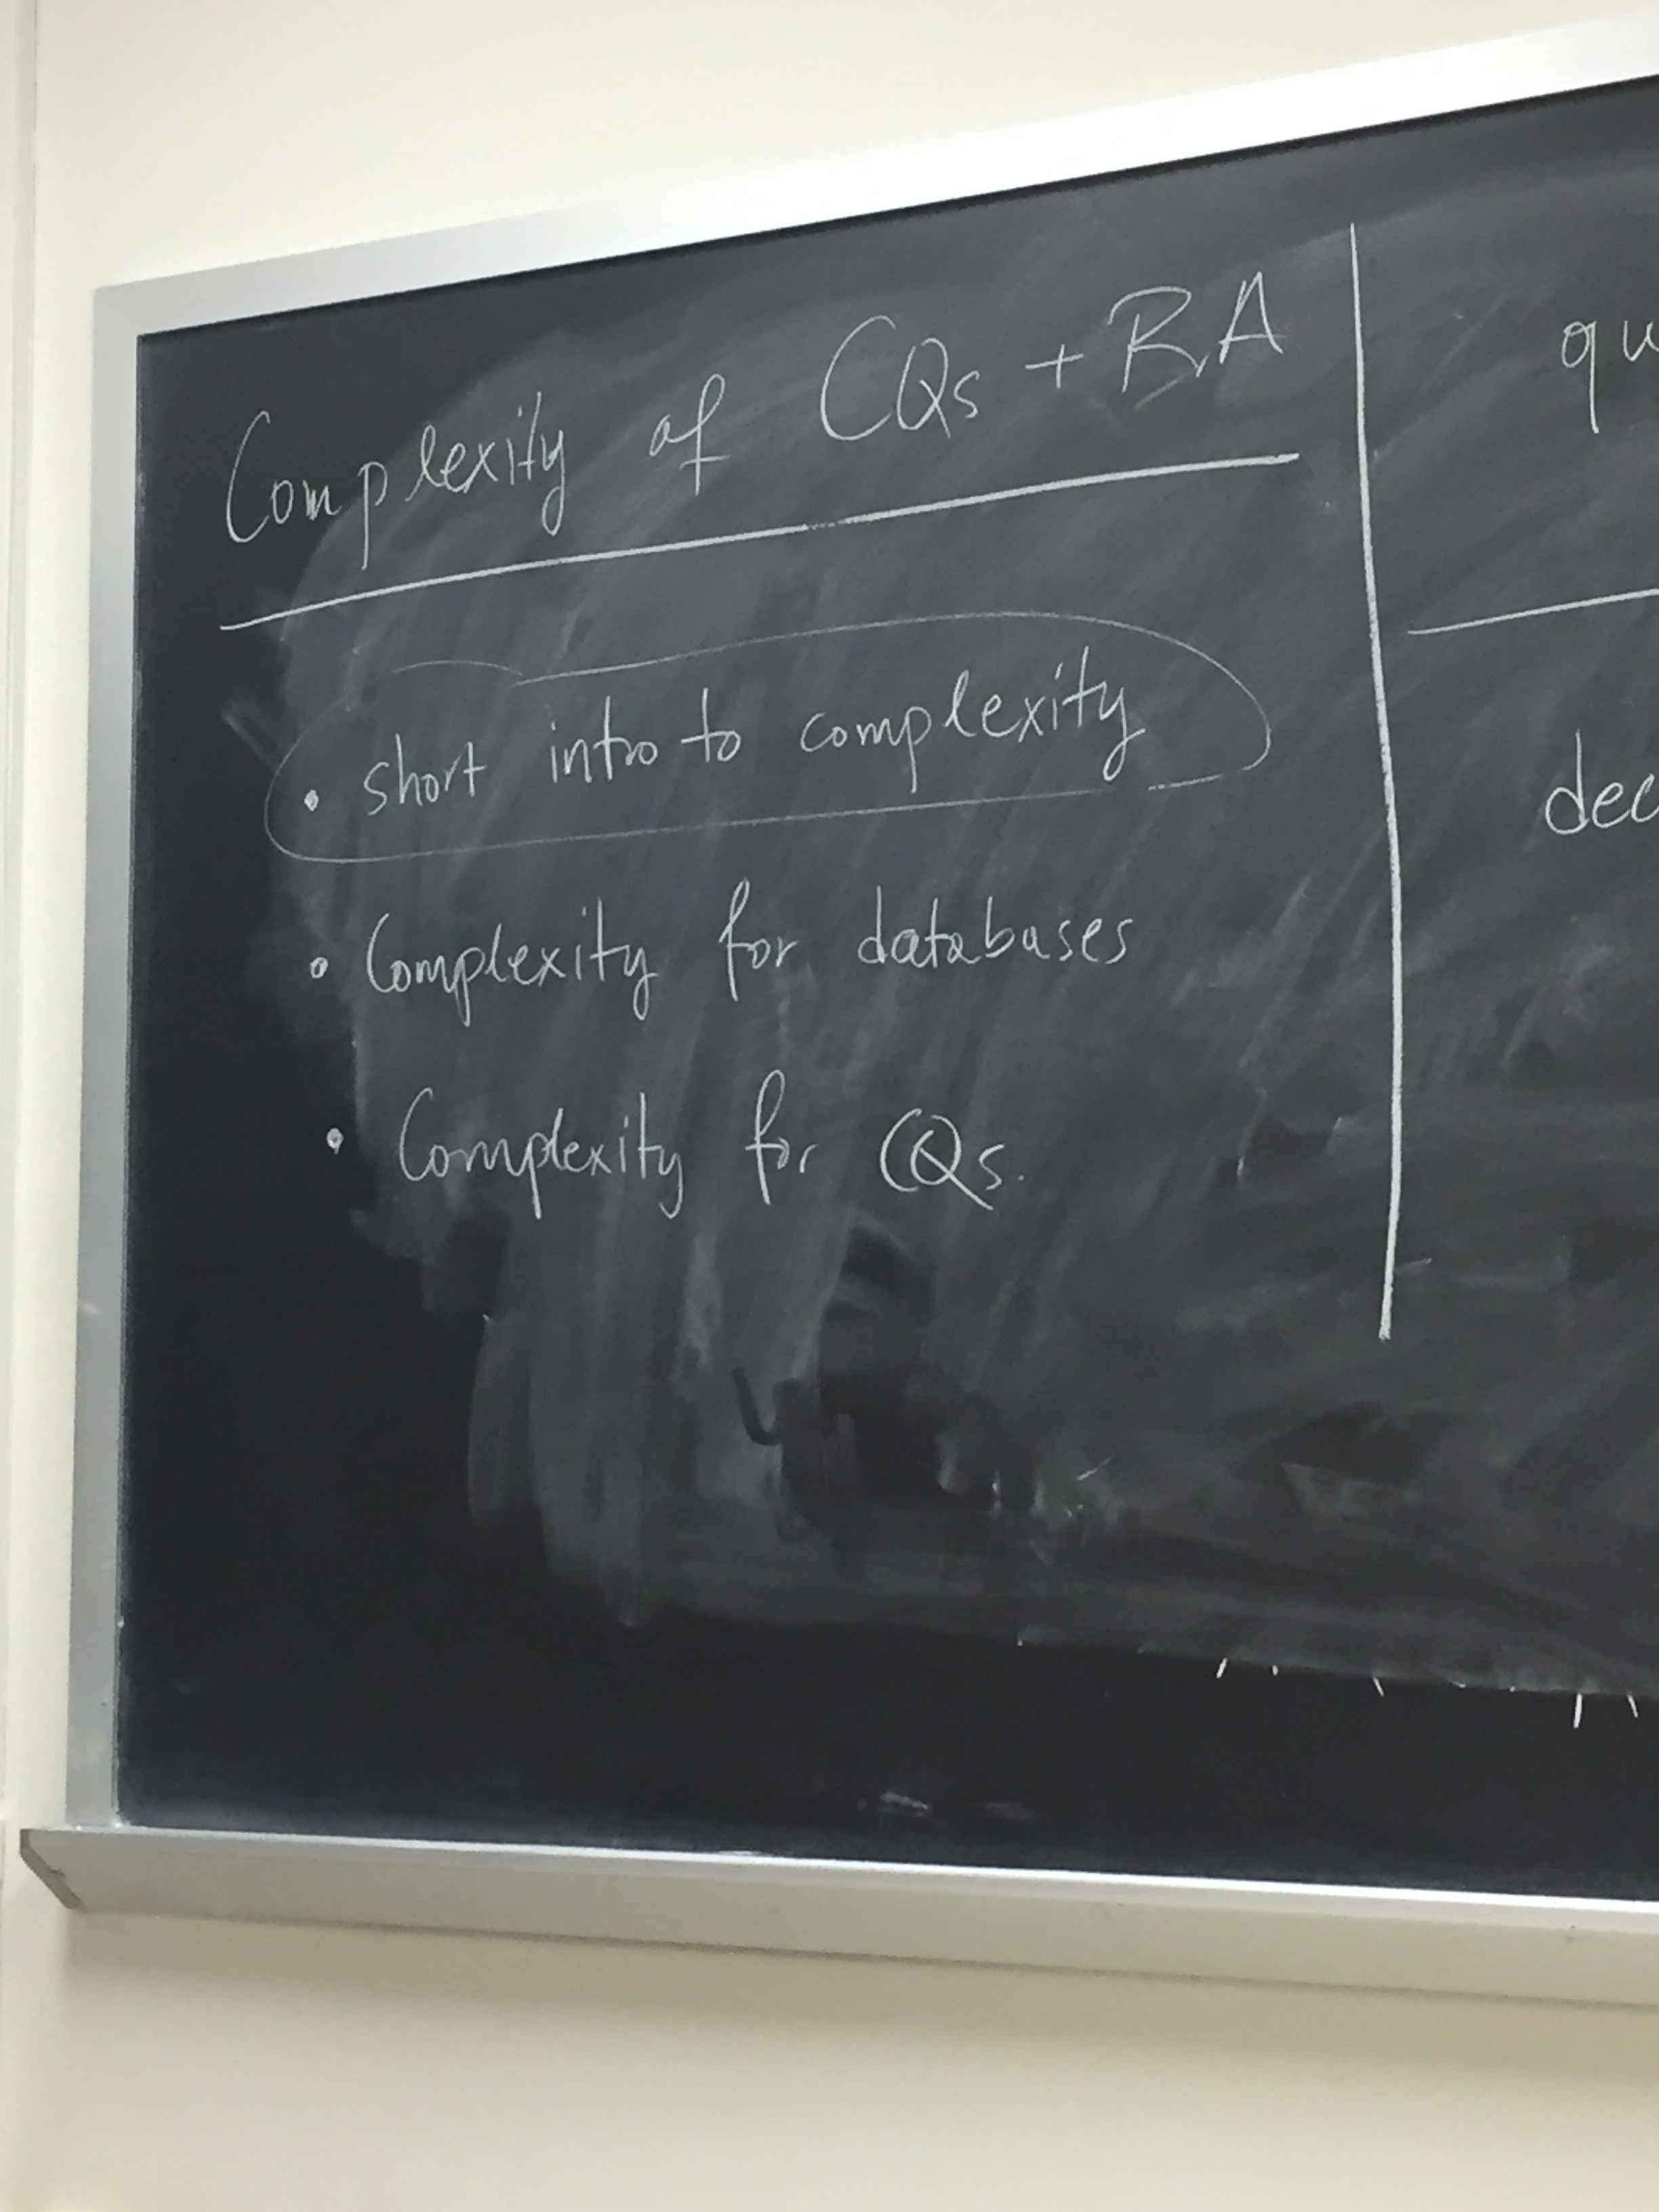 Complexity of CQs + RA
• short intro to complexity
• Complexity for databases
• Complexity for CQs.
qu
dec